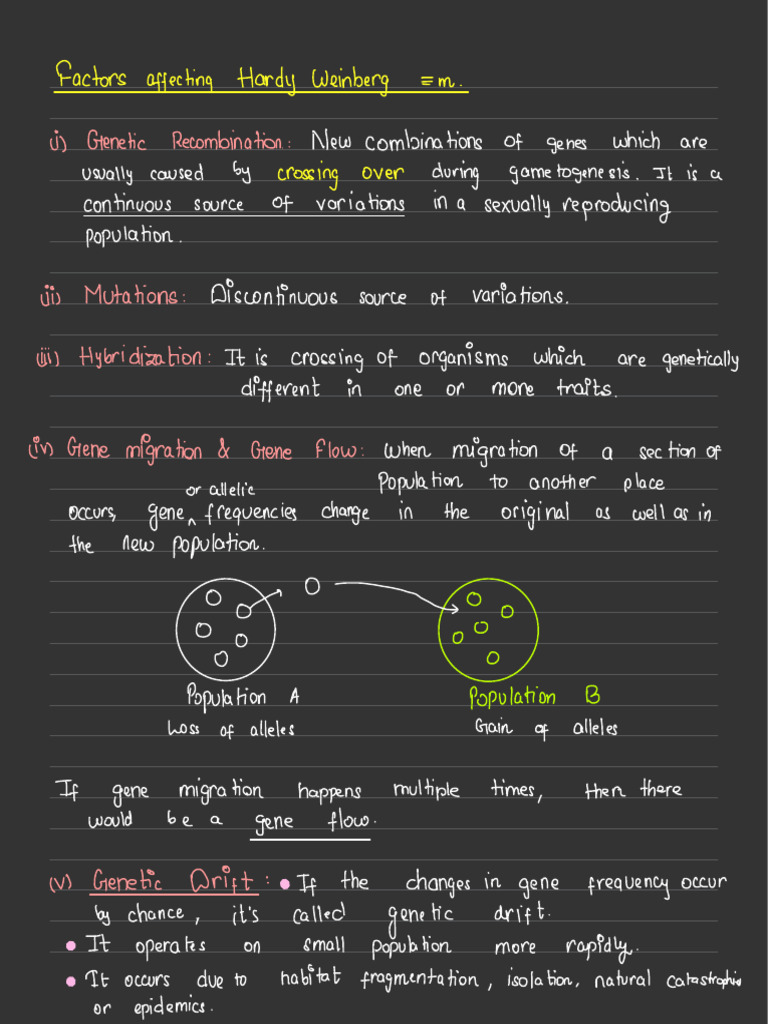 Factors affecting Hardy Weinberg ≡m.
(i) Genetic Recombination: New combinations of genes which are
usually caused by crossing over during gametogenesis. It is a
continuous source of variations in a sexually reproducing
population.
(ii) Mutations: Discontinuous source of variations.
(iii) Hybridization: It is crossing of organisms which are genetically
different in one or more traits.
(iv) Gene migration & Gene flow: when migration of a section of
population to another place
or allelic
occurs, gene ‸ frequencies change in the original as well as in
the new population.
Population A
Population B
Loss of alleles
Gain of alleles
If gene migration happens multiple times, then there
would be a gene flow.
(v) Genetic Drift: • If the changes in gene frequency occur
by chance, it's called genetic drift.
• It operates on small population more rapidly.
• It occurs due to habitat fragmentation, isolation, natural catastrophis
or epidemics.